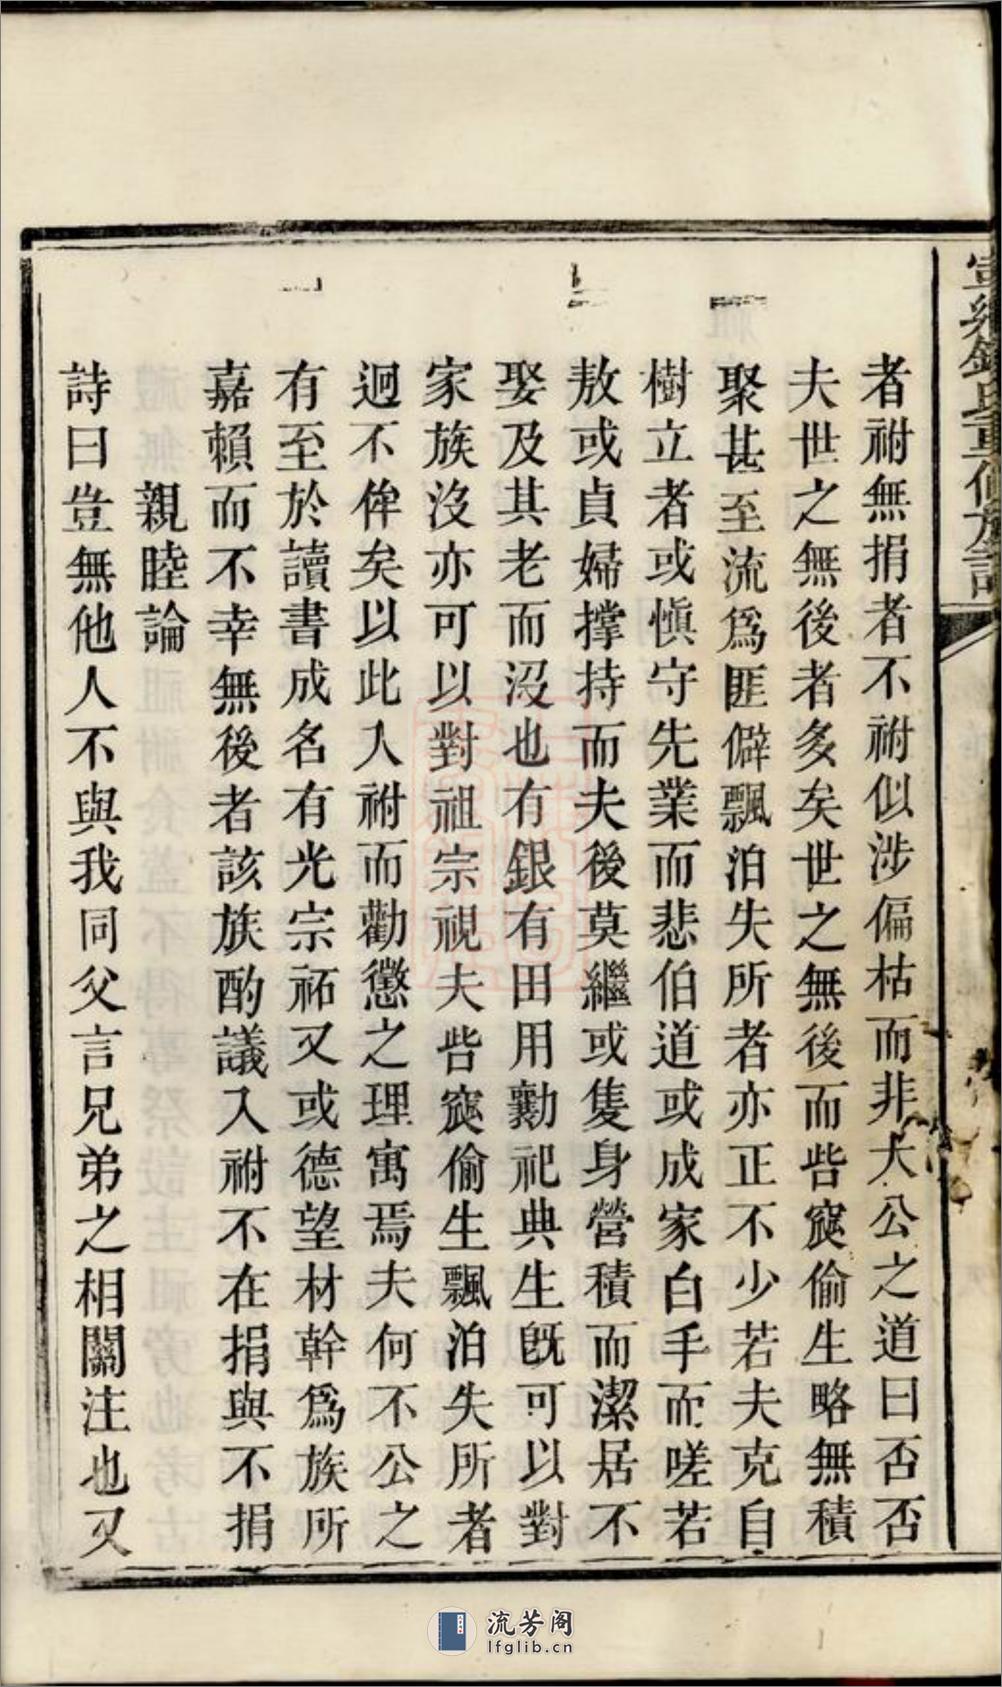 者祔無捐者不祔似涉偏枯而非大公之道曰否否
夫世之無後者多矣世之無後而呰窳偷生略無積
聚甚至流爲匪僻飄泊失所者亦正不少若夫克自
樹立者或慎守先業而悲伯道或成家白手而嗟若
敖或貞婦撐持而夫後莫繼或隻身營積而潔居不
娶及其老而沒也有銀有田用勷祀典生旣可以對
家族沒亦可以對祖宗視夫呰窳偷生飄泊失所者
迥不侔矣以此入祔而勸懲之理寓焉夫何不公之
有至於讀書成名有光宗祏又或德望材幹爲族所
嘉賴而不幸無後者該族酌議入祔不在捐與不捐
親睦論
詩曰豈無他人不與我同父言兄弟之相關注也又
流芳阁
lfglib.cn